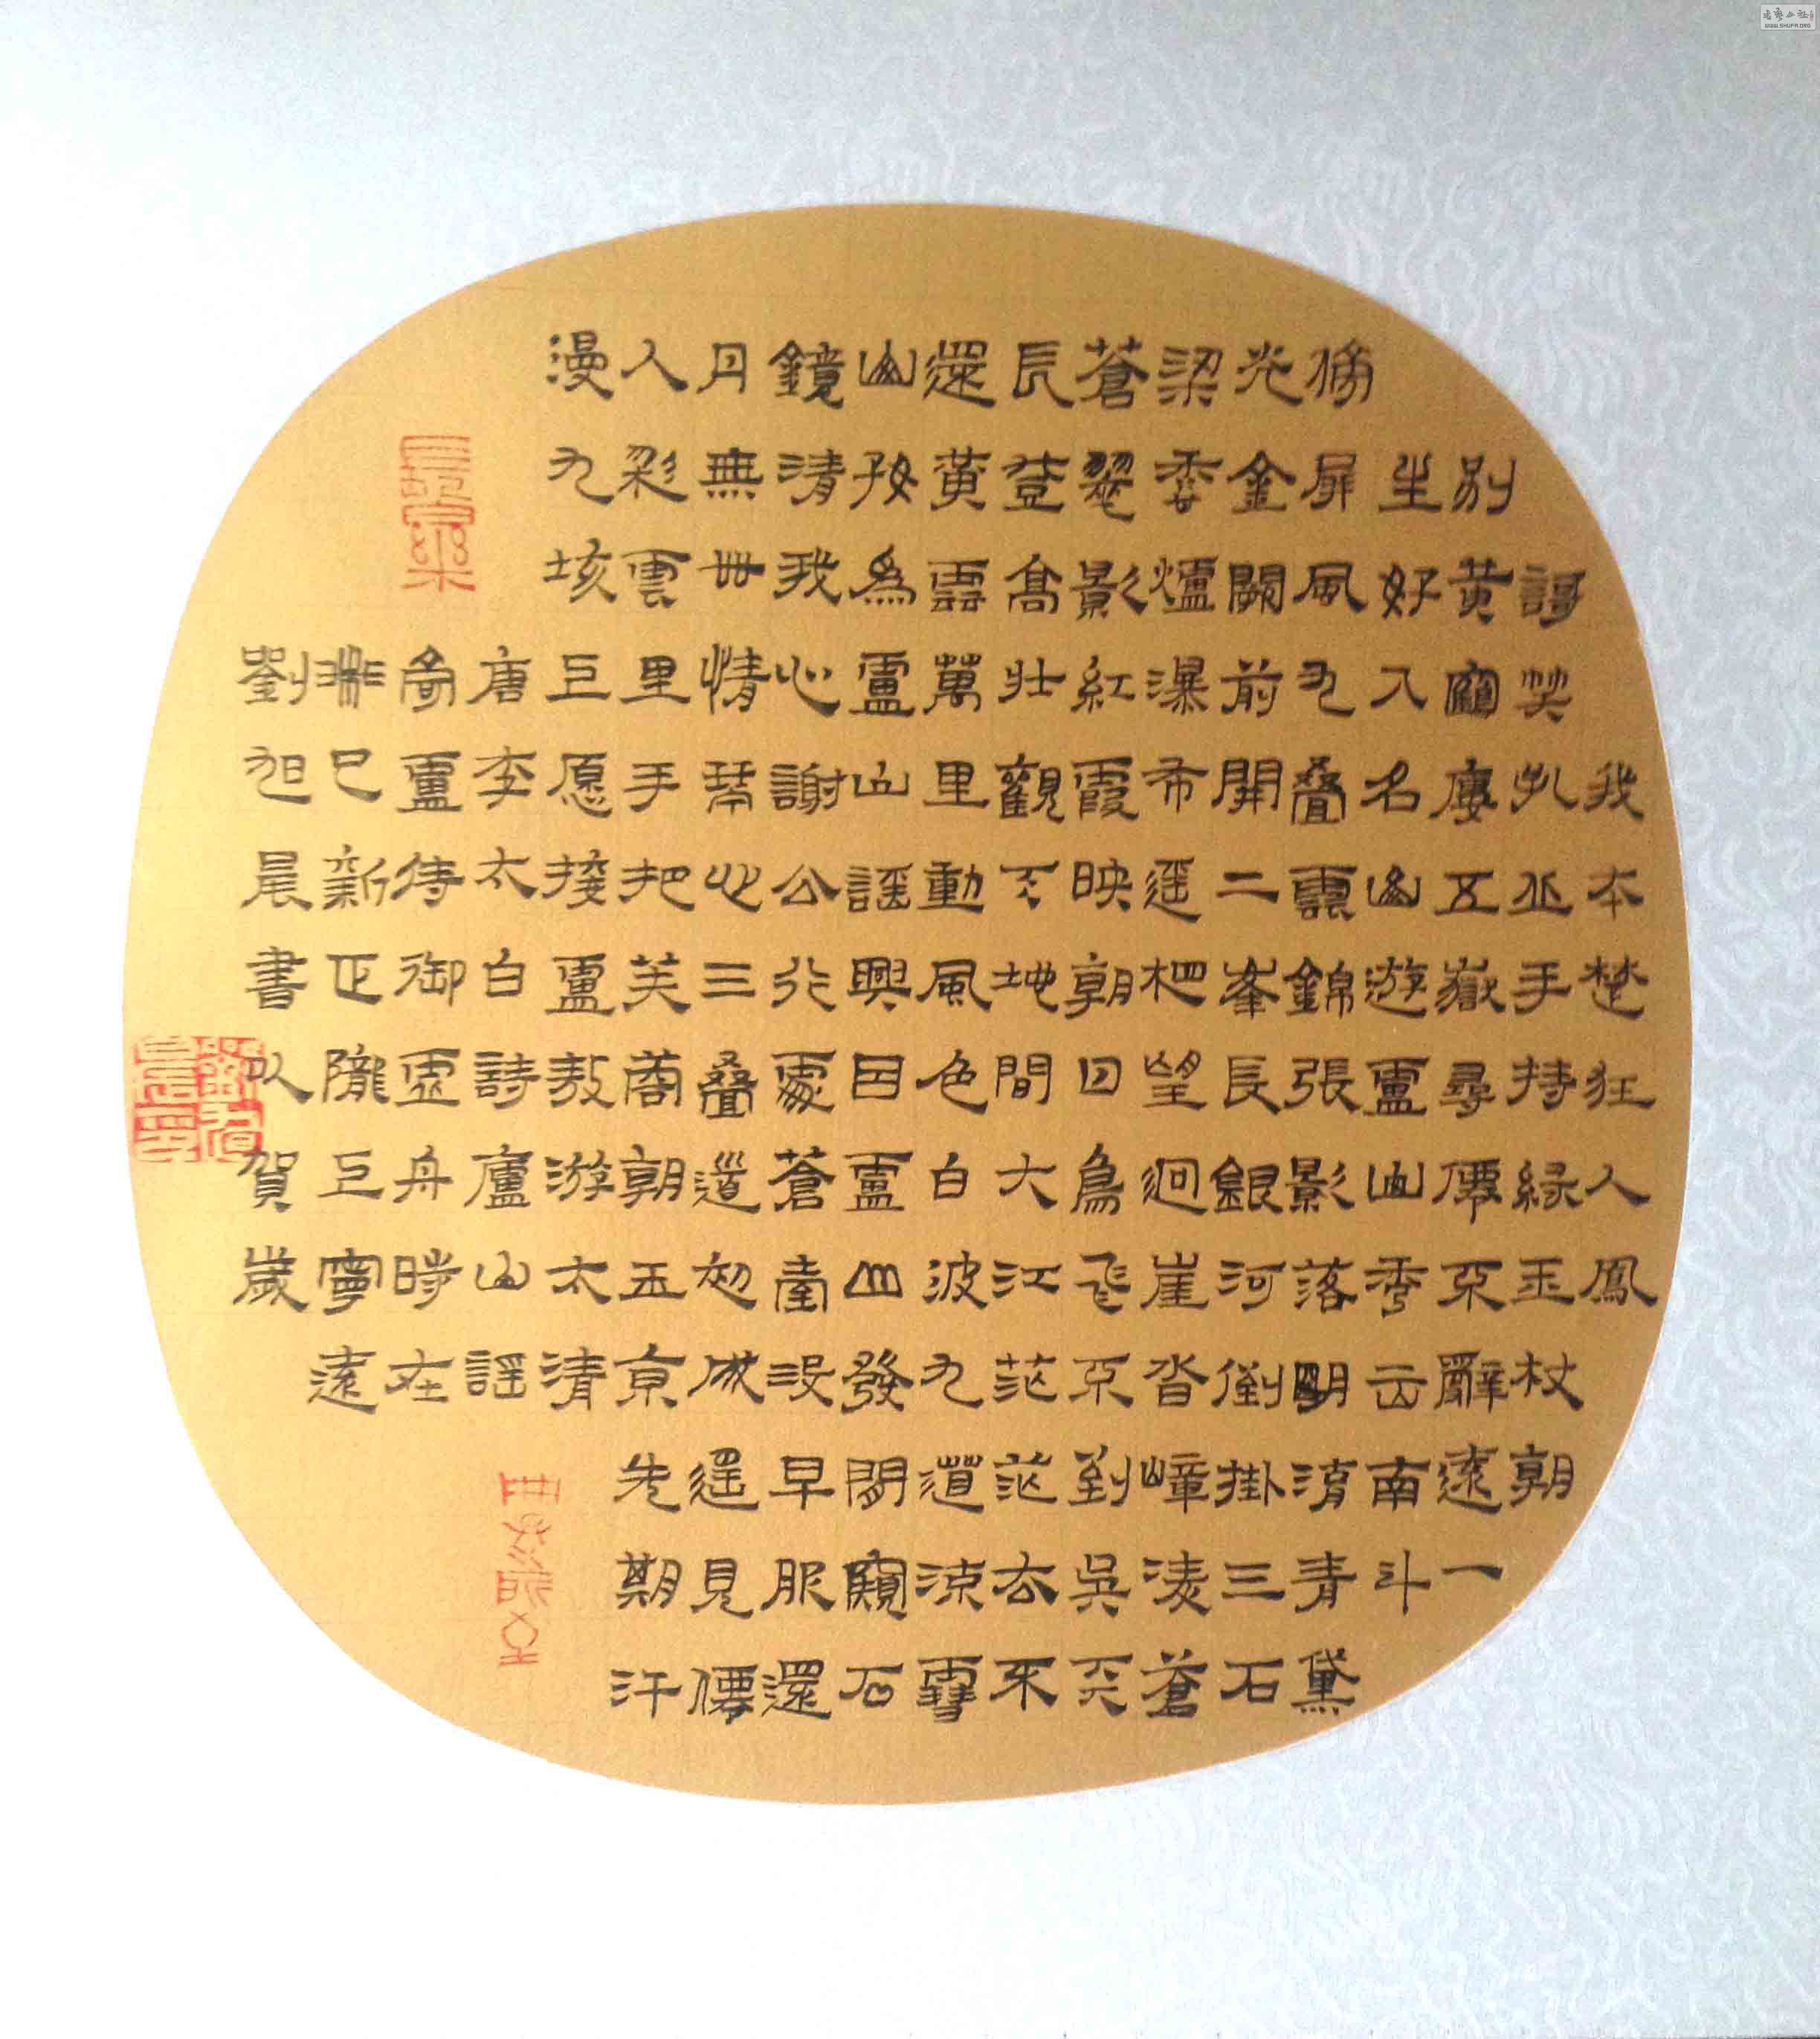 我本楚狂人鳳
謌笑孔丘手持緑玉杖朝
別黃鶴廔五嶽尋僊不辭遠一
生好入名山遊盧山秀出南斗
傍屏風九疊雲錦張影落明湖青黛
光金闕前開二峯長銀河倒掛三石
梁香爐瀑布遥相望迴崖沓嶂凌蒼
蒼翠影紅霞映朝日鳥飛不到吳天
長登高壯觀天地間大江茫茫去不
還黃雲萬里動風色白波九道流雪
山好為盧山謡興因盧山發閒窺石
鏡清我心謝公行處蒼臺沒早服還
丹無世情琴心三疊道初成遥見僊
人彩雲里手把芙蓉朝玉京先期汗
漫九垓上愿接盧敖游太清
唐李太白詩廬山謡
寄盧侍御虛舟時在
癸巳新正隴上寧遠
劉旭晨書以賀歲